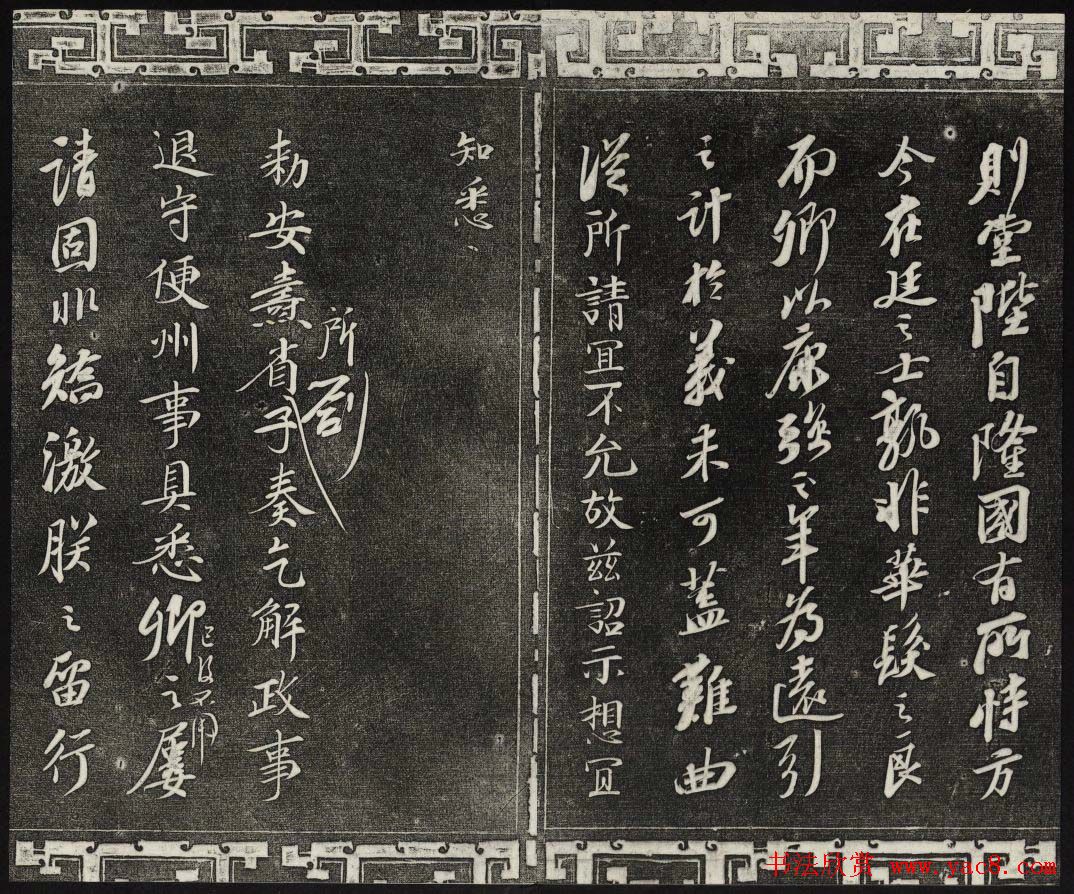 則堂陛自隆國有所恃方
今在廷之士孰非華髮之良
而卿以康強之年為遠引
之計於義未可蓋難曲
從所請宜不允故茲詔示想宜
知悉
敕安燾省所劄子奏乞解政事
退守便州事具悉卿之屢
已後不用
請固非矯激朕之留行
书法欣赏 www.yac8.com